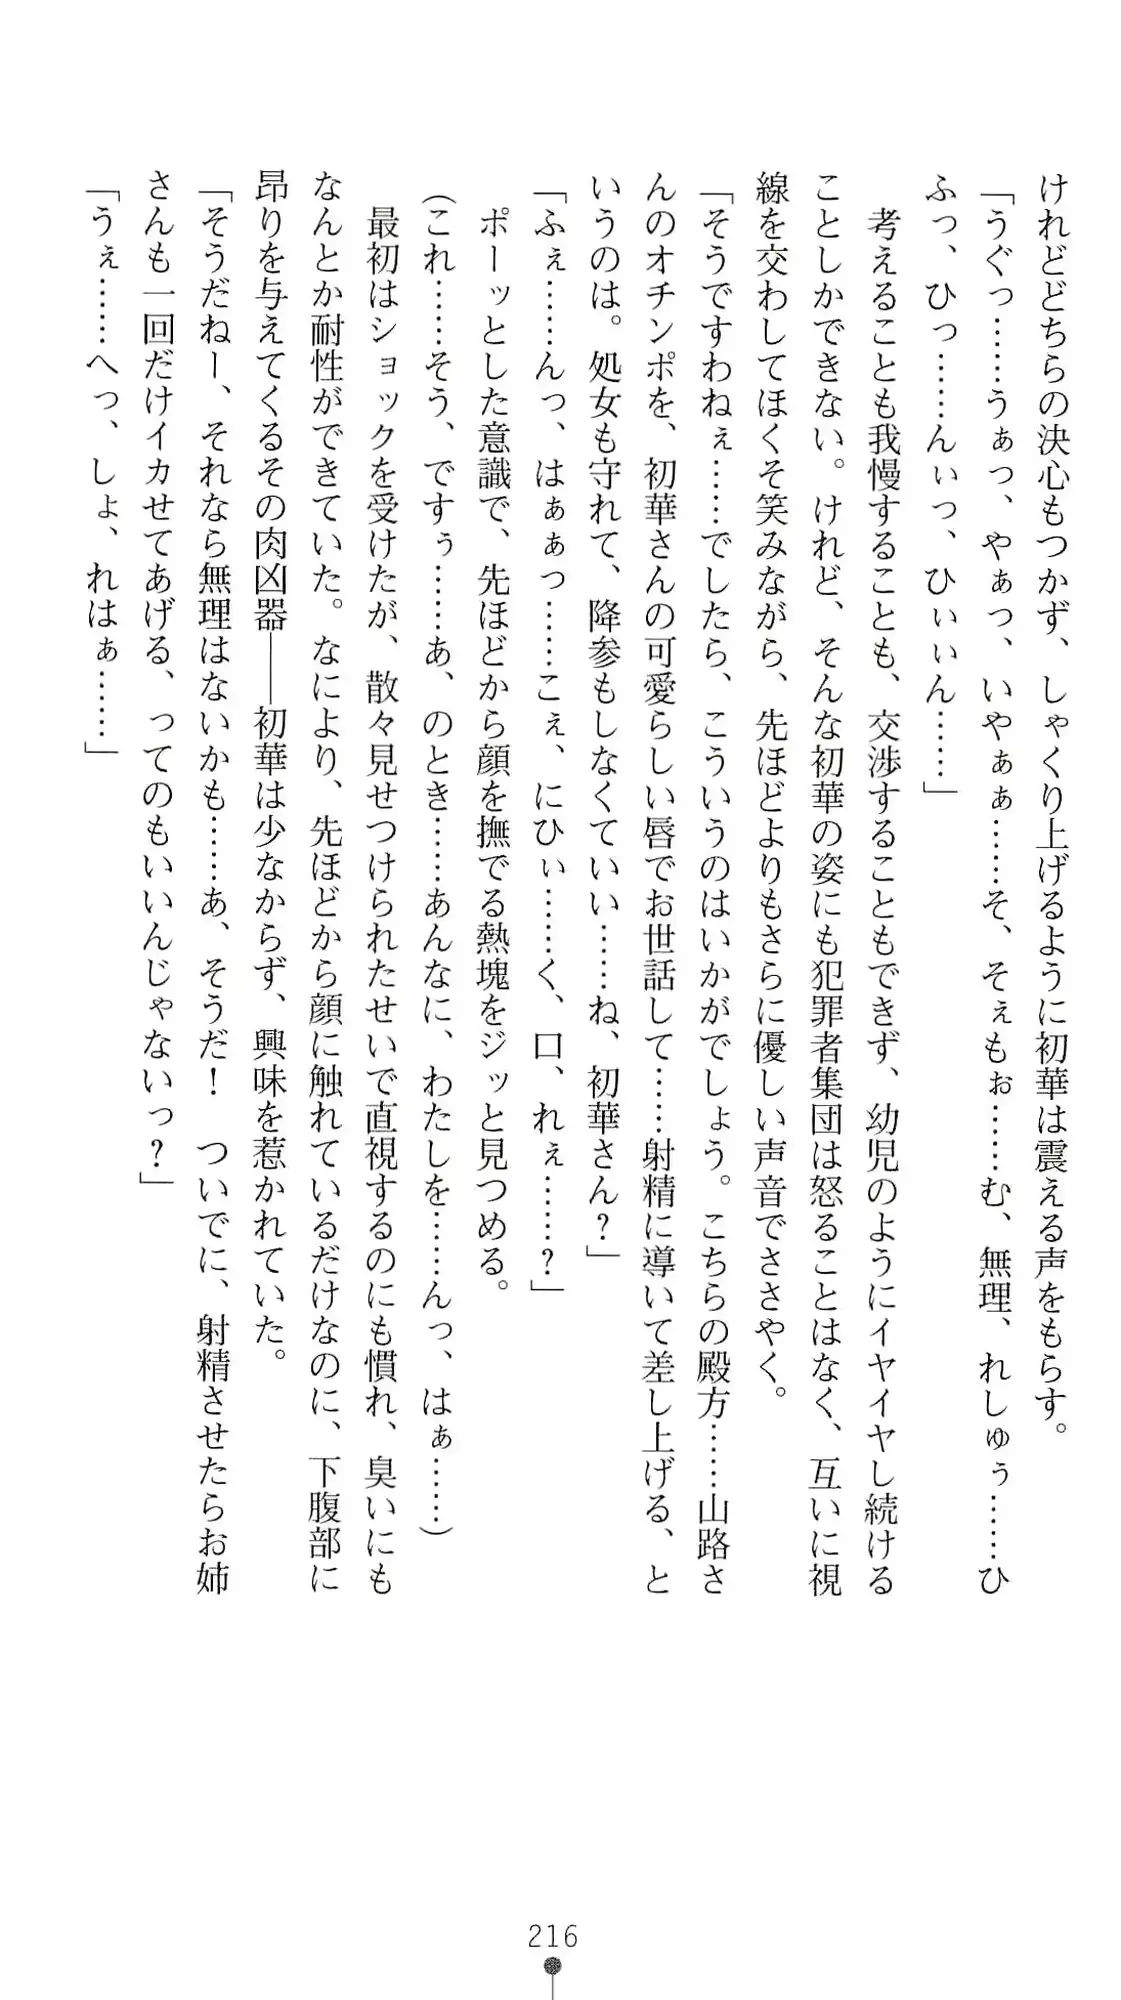 けれどどちらの決心もつかず、しゃくり上げるように初華は震える声をもらす。
「うぐっ……うぁっ、やぁっ、いやぁぁ……そ、そぇもぉ……む、無理、れしゅぅ……ひ
ふっ、ひっ……んぃっ、ひぃぃん……」
考えることも我慢することも、交渉することもできず、幼児のようにイヤイヤし続ける
ことしかできない。けれど、そんな初華の姿にも犯罪者集団は怒ることはなく、互いに視
線を交わしてほくそ笑みながら、先ほどよりもさらに優しい声音でささやく。
「そうですわねぇ……でしたら、こういうのはいかがでしょう。こちらの殿方……山路さ
んのオチンポを、初華さんの可愛らしい唇でお世話して……射精に導いて差し上げる、と
いうのは。処女も守れて、降参もしなくていい……ね、初華さん？」
「ふぇ……んっ、はぁぁっ……こぇ、にひぃ……く、口、れぇ……？」
ポーッとした意識で、先ほどから顔を撫でる熱塊をジッと見つめる。
（これ……そう、ですぅ……あ、のとき……あんなに、わたしを……んっ、はぁ……）
最初はショックを受けたが、散々見せつけられたせいで直視するのにも慣れ、臭いにも
なんとか耐性ができていた。なにより、先ほどから顔に触れているだけなのに、下腹部に
昂りを与えてくるその肉凶器――初華は少なからず、興味を惹かれていた。
「そうだねー、それなら無理はないかも……あ、そうだ！　ついでに、射精させたらお姉
さんも一回だけイカせてあげる、ってのもいいんじゃないっ？」
「うぇ……へっ、しょ、れはぁ……」
216